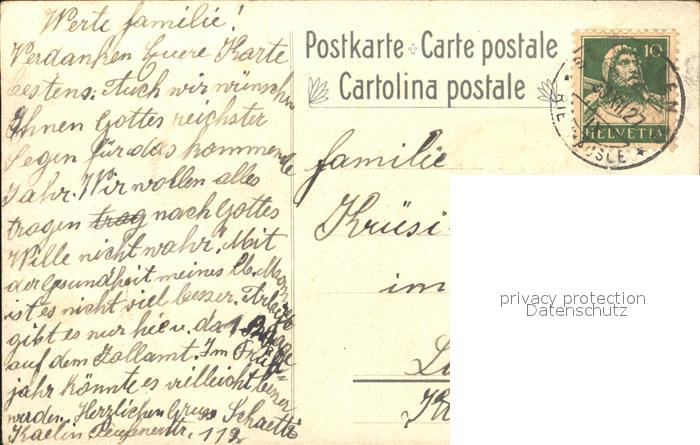 Werte Familie!
Verdanken Euere Karte
bestens. Auch wir wünschen
Ihnen Gottes reichster
Segen für das kommende
Jahr. Wir wollen alles
tragen trag nach Gottes
Wille nicht wahr. Mit
der Gesundheit meines lb. Mannes
ist es nicht viel besser. Arbeit
gibt es nur hie u. da
auf dem Zollamt. Im Früh-
jahr könnte es vielleicht besser
werden. Herzlichen Gruss Schaetti
Kaelin 112
Postkarte Carte postale
Cartolina postale
10
HELVETIA
familie
Krüsi
im
privacy protection
Datenschutz